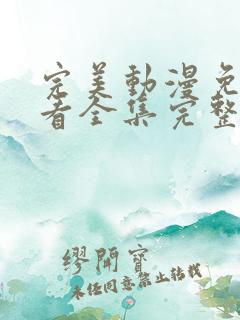 完美動漫免
看全集完整
繆開寶
未经同意禁止转载